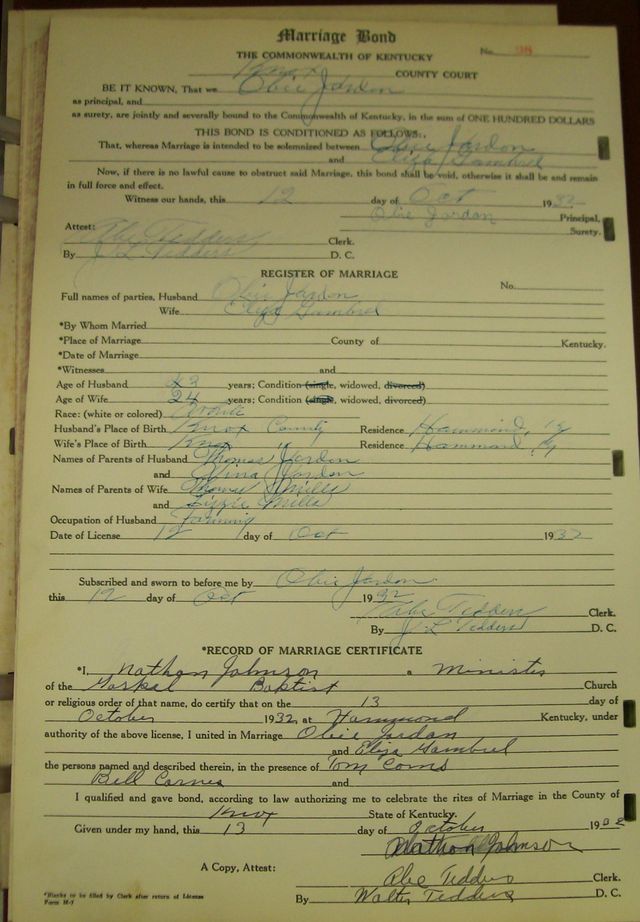 Marriage Bond
No. 98
THE COMMONWEALTH OF KENTUCKY
Knox COUNTY COURT
BE IT KNOWN, That we Obie Jordon
as principal, and
as surety, are jointly and severally bound to the Commonwealth of Kentucky, in the sum of ONE HUNDRED DOLLARS
THIS BOND IS CONDITIONED AS FOLLOWS:
That, whereas Marriage is intended to be solemnized between Obie Jordon
and Eliza Gambrel
Now, if there is no lawful cause to obstruct said Marriage, this bond shall be void, otherwise it shall be and remain
in full force and effect.
Witness our hands, this 12 day of Oct 1932
Obie Jordon Principal,
Surety.
Attest:
Abe Tedders Clerk.
By J L Tedders D. C.
REGISTER OF MARRIAGE
No.
Full names of parties, Husband Obie Jordon
Wife Eliza Gambrel
*By Whom Married
*Place of Marriage County of Kentucky.
*Date of Marriage
*Witnesses and
Age of Husband 43 years; Condition (single, widowed, divorced)
Age of Wife 24 years; Condition (single, widowed, divorced)
Race: (white or colored) White
Husband's Place of Birth Knox County Residence Hammond, Ky
Wife's Place of Birth Knox " Residence Hammond, Ky
Names of Parents of Husband Thomas Jordon
and Jordon
Names of Parents of Wife Thomas Mills
and Lizzie Mills
Occupation of Husband Farming
Date of License 12 day of Oct 1932
Subscribed and sworn to before me by Obie Jordon
this 12 day of Oct 1932
Abe Tedders Clerk.
By J. L Tedders D. C.
*RECORD OF MARRIAGE CERTIFICATE
*I, Nathan Johnson a Minister
of the Baptist Church
or religious order of that name, do certify that on the 13 day of
October 1932, at Hammond Kentucky, under
authority of the above license, I united in Marriage Obie Jordan
and Eliza Gambrel
the persons named and described therein, in the presence of Tom
Bill Carnes and
I qualified and gave bond, according to law authorizing me to celebrate the rites of Marriage in the County of
Knox State of Kentucky.
Given under my hand, this 13 day of October 1932
Nathan Johnson
A Copy, Attest: Abe Tedders Clerk.
By Walter Tedders D. C.
*Blanks to be filled by Clerk after return of License
Form H-7